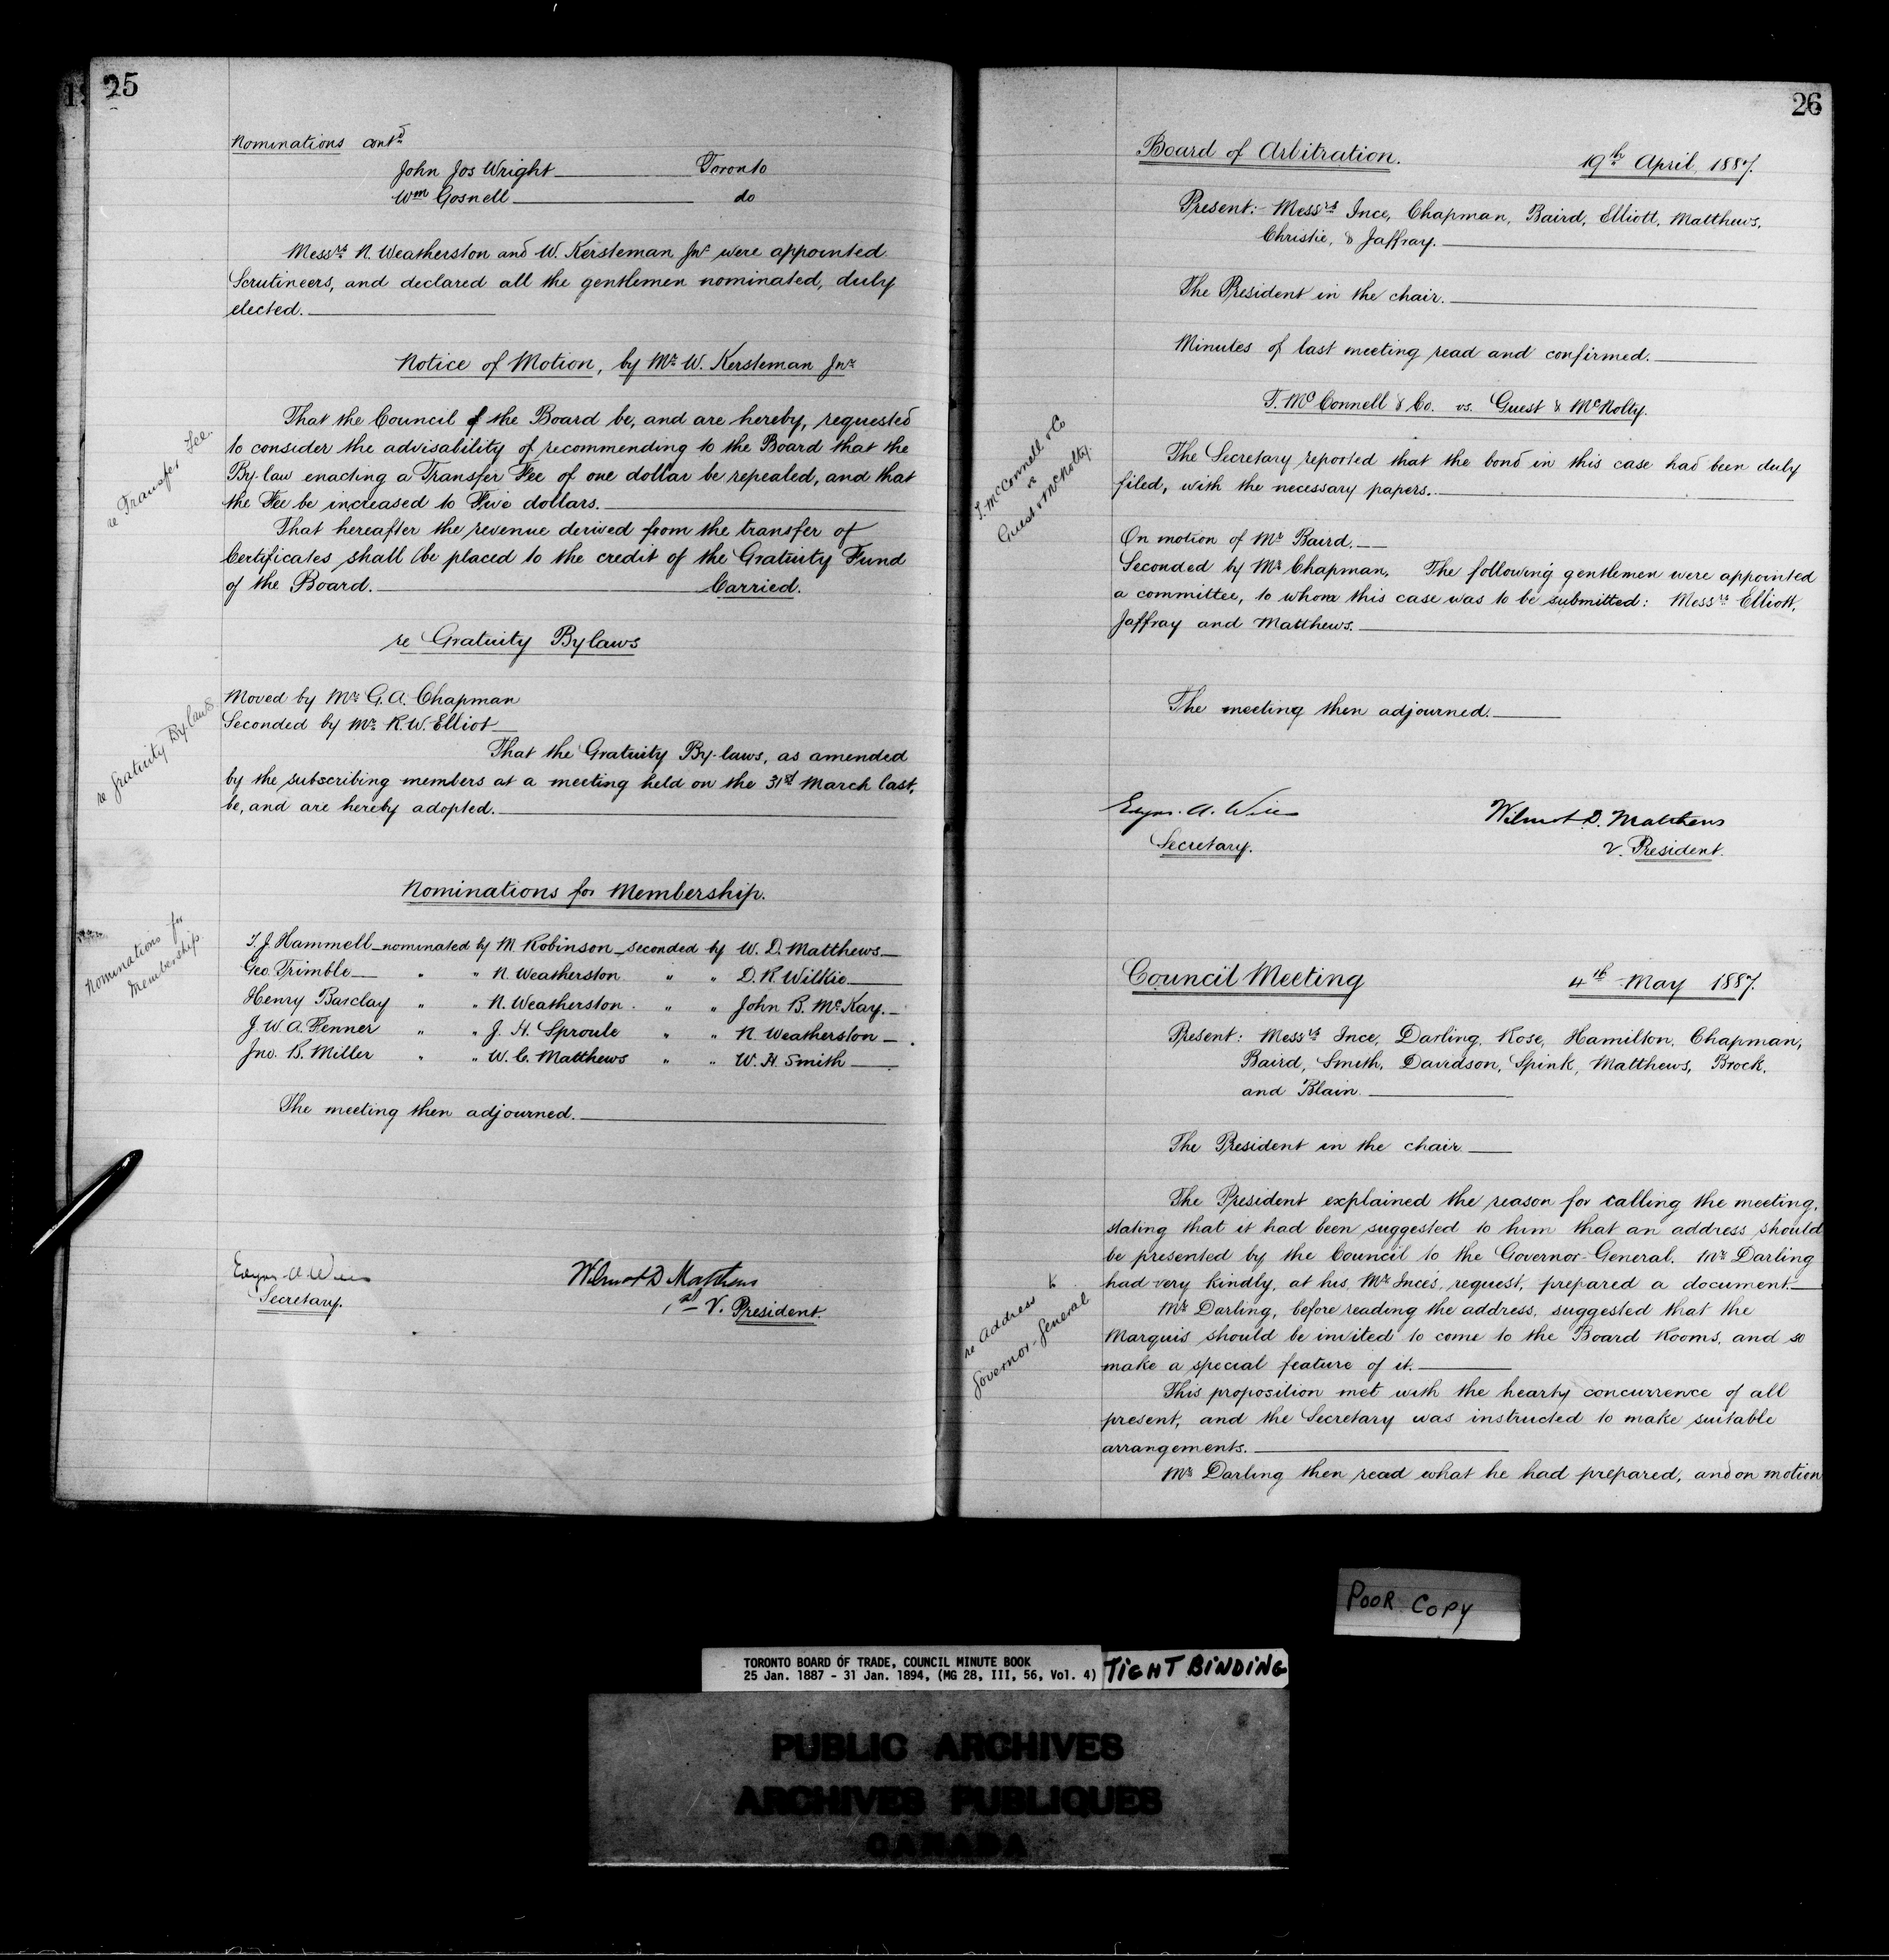 25
Nominations contd
John Jos Wright Toronto
Wm Gosnell do
Messrs N. Weatherston and W. Kersteman Jnr were appointed
Scrutineers, and declared all the gentlemen nominated, duly
elected.
Notice of Motion, by Mr W. Kersteman Jnr
re Transfer Fee.
That the Council of the Board be, and are hereby, requested
to consider the advisability of recommending to the Board that the
By-law enacting a Transfer Fee of one dollar be repealed, and that
the Fee be increased to Five dollars.
That hereafter the revenue derived from the transfer of
Certificates shall be placed to the credit of the Gratuity Fund
of the Board. Carried.
re Gratuity Bylaws
re Gratuity Bylaws
Moved by Mr G.A. Chapman
Seconded by Mr R.W. Elliot
That the Gratuity By-laws, as amended
by the subscribing members at a meeting held on the 31st March last,
be, and are hereby adopted.
Nominations for Membership.
Nominations for
Membership.
T. J. Hammell nominated by M Robinson seconded by W. D. Matthews
Geo. Trimble " " N. Weatherston " " D. R. Wilkie
Henry Barclay " " N. Weatherston " " John B. McKay.
J. W. A. Fenner " " J. H. Sproule " " N. Weatherston
Jno. B. Miller " " W. C. Matthews " " W. H. Smith
The meeting then adjourned.
Edgar A. Wills
Secretary.
Wilmot D Matthews
1st V. President.
26
Board of Arbitration. 19th April, 1887.
Present: Messrs Ince, Chapman, Baird, Elliott, Matthews,
Christie, & Jaffray.
The President in the chair.
Minutes of last meeting read and confirmed.
T. McConnell & Co. vs. Guest & McNolty.
T. McConnell & Co
vs
Guest & McNolty.
The Secretary reported that the bond in this case had been duly
filed, with the necessary papers.
On motion of Mr Baird.
Seconded by Mr Chapman, The following gentlemen were appointed
a committee, to whom this case was to be submitted: Messrs Elliott,
Jaffray and Matthews.
The meeting then adjourned.
Edgar A. Wills
Secretary.
Wilmot D. Matthews
V. President.
Council Meeting 4th May 1887.
Present: Messrs Ince, Darling, Rose, Hamilton, Chapman,
Baird, Smith, Davidson, Spink, Matthews, Brock,
and Blain.
The President in the chair
The President explained the reason for calling the meeting,
stating that it had been suggested to him that an address should
be presented by the Council to the Governor-General. Mr Darling
had very kindly, at his, Mr Ince's, request, prepared a document.
re Address to
Governor-General
Mr Darling, before reading the address, suggested that the
Marquis should be invited to come to the Board Rooms, and so
make a special feature of it.
This proposition met with the hearty concurrence of all
present, and the Secretary was instructed to make suitable
arrangements.
Mr Darling then read what he had prepared, and on motion
POOR COPY
TORONTO BOARD OF TRADE, COUNCIL MINUTE BOOK
25 Jan. 1887 - 31 Jan. 1894, (MG 28, III, 56, Vol. 4)
TIGHT BINDING
PUBLIC ARCHIVES
ARCHIVES PUBLIQUES
CANADA